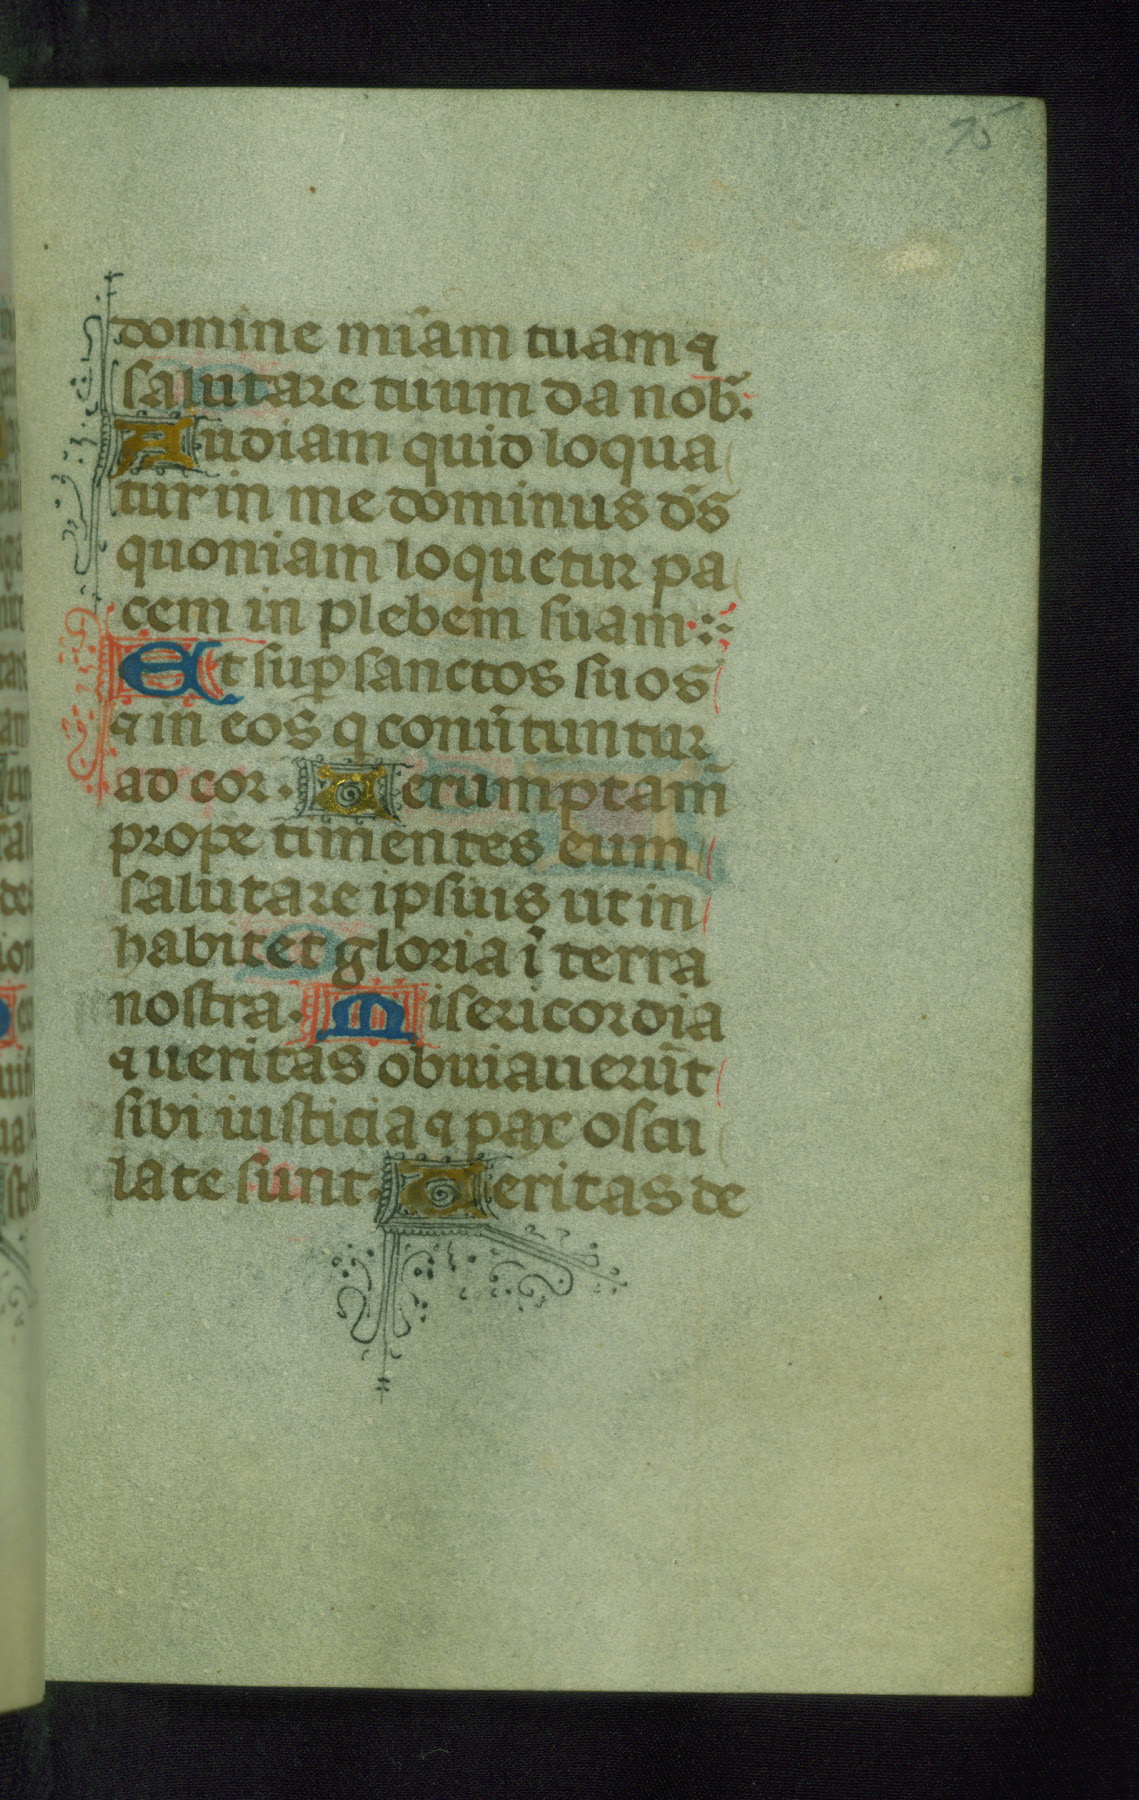 75
domine mīam tuam ⁊
salutare tuum da nob̄.
Audiam quid loqua
tur in me dominus dn̄s
quoniam loquetur pa
cem in plebem suam
Et sup̄ sanctos suos
⁊ in eos q̄ conūtuntur
ad cor. Verumptam̄
prope timentes eum
salutare ipsius ut in
habitet gloria ī terra
nostra. Misericordia
⁊ ueritas obuiauerūt
sibi iusticia ⁊ pax oscu
late sunt. Veritas de